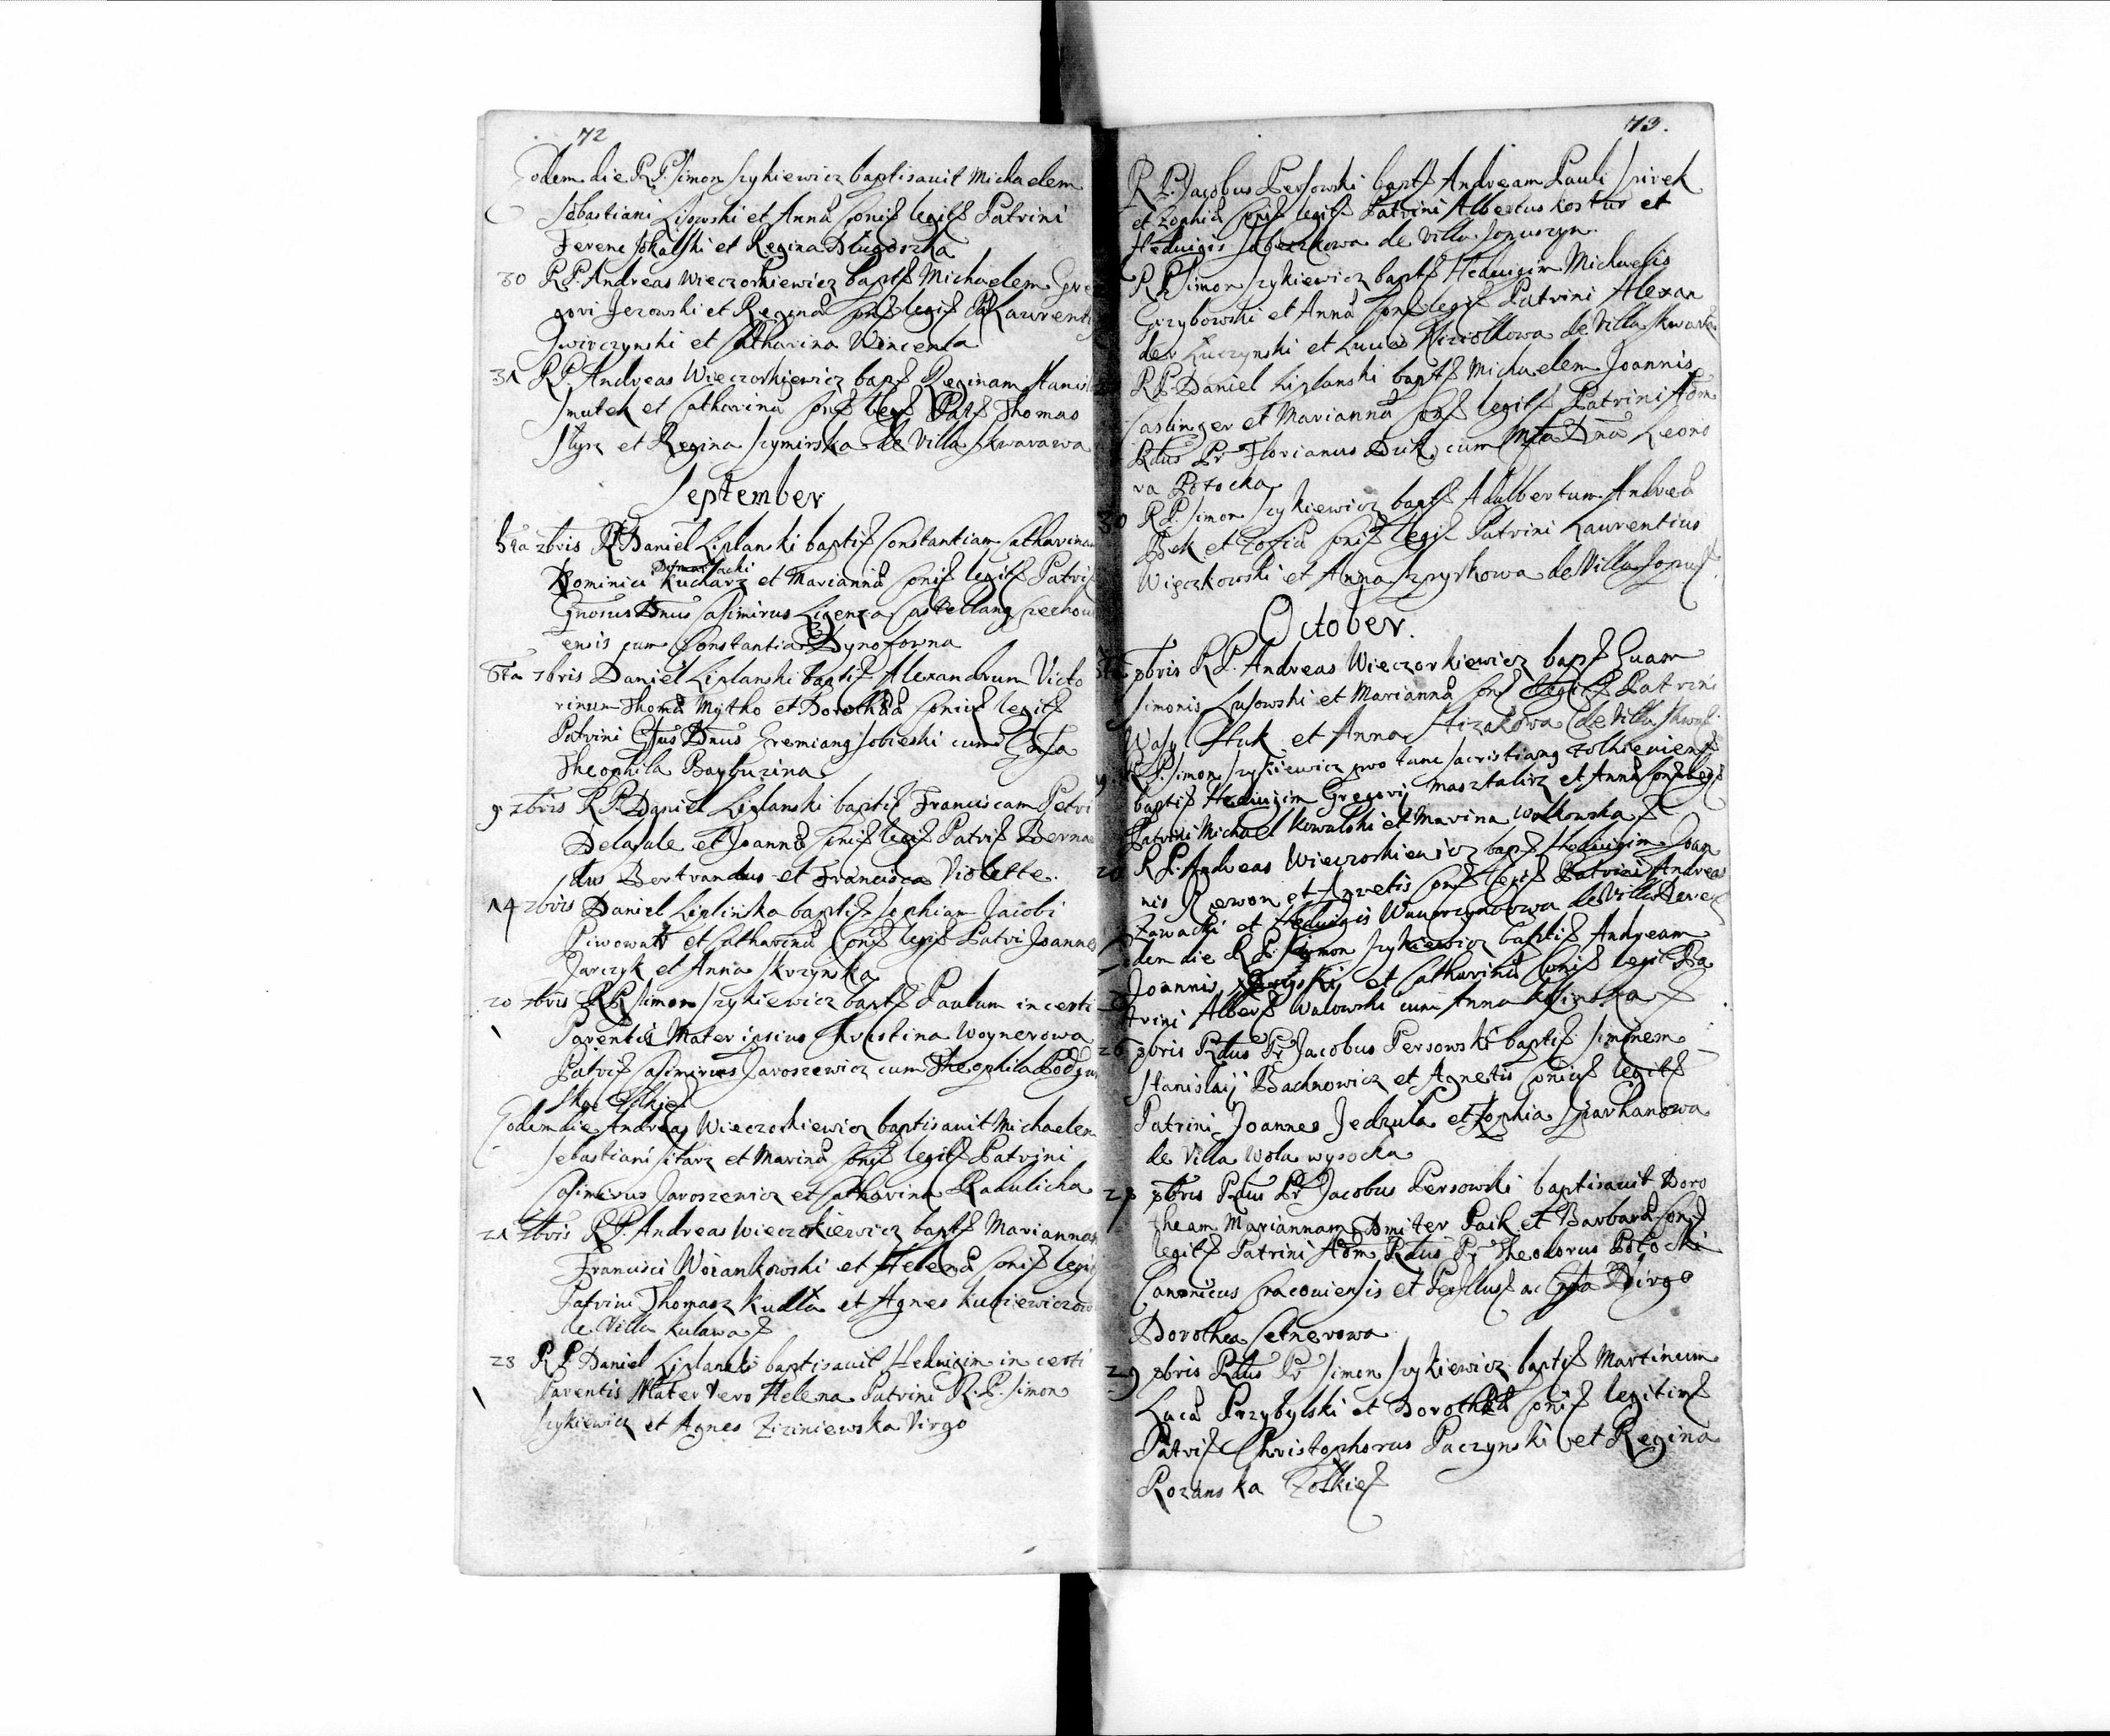 72
Eodem die R P. Simon Szykiewicz baptisavit Michaelem
Sebastiani Lisowski et Anna Conif legitf Patrini
Ferenc Sokalski et Regina Długoszka
30 R P. Andreas Wieczorkiewicz baptf Michaelem Gre
gori Jezowski et Regina Conf legif Laurenti
Swirczynski et Catharina Wincenta
31 R P. Andreas Wieczorkiewicz bapf Reginam Stanis
Smutek et Catharina Conf legf Patf Thomas
Styrz et Regina Szymirska de Villa Skwarawa
September
5ta 7bris R P Daniel Liplanski baptif Constantiam Catharinam
Dominici Kucharz et Marianna Conif legitf Patrif
Gnosus Dnus Casimirus Ligenza Castellang Czechow
ensis cum Constantia Dynoforna
6ta 7bris Daniel Liplanski baptif Alexandrum Victo
rinum Thoma Mytko et Dorothea Coniuf legitf
Patrini Dnus Jeremiang Sobieski cum
Theophila Bayburzina
9 7bris R P. Daniel Liplanski baptif Franciscam Petri
Delasale et Joanna Conif legif Patrif Berna
dus Bertrandus et Francisca Violette.
14 7bris Daniel Liplinska baptif Sophiam Jacobi
Piwowar et Catharina Conif legif Patri Joannes
Jarczyk et Anna Skrzynska
20 7bris R P. Simon Szykiewicz baptf Paulum incerti
Parentis Mater ipsius Christina Woynerowa
Patrif Casimirus Jaroszewicz cum Theophila Podgur
ska
Eodem die Andreas Wieczorkiewicz baptisavit Michaelem
Sebastiani Sitarz et Marina Conif legitf Patrini
Casimirus Jaroszewicz et Catharina Radulicha
21 7bris R P. Andreas Wieczorkiewicz baptf Mariannam
Francisci Woiankowski et Helena Conif legi
Patrini Thomasz Kudła et Agnes Kuciewiczow
de Villa Kulawaf
23 R P. Daniel Liplanski baptisavit Hedvigim incerti
Parentis Mater vero Helena Patrini R. P. Simon
Szykiewicz et Agnes Ziziniewska Virgo
73.
R P. Jacobus Persowski baptf Andream Pauli Szirek
et Zophia Conif legif Patrini Albertus Kostur et
Hedvigis de Villa Sopuszyn.
R P Simon Szykiewicz baptf Hedvigim Michaelis
Grzybowski et Anna Conf legif Patrini Alexan
der Łuczynski et Lucia Kiziołkowa de Villa
R P. Daniel Liplanski baptf Michaelem Joannis
Caslinger et Marianna Conf legitf Patrini Adm
Rdus Pr Florianus Duk cum Dna Leono
ra Potocka
30 R P. Simon Szykiewicz baptf Adalbertum Andrea
Bek et Zofia Conif legif Patrini Laurentius
Więczkowski et Anna Szpyrkowa de Villa Sopuf
October.
5ta 8bris R P. Andreas Wieczorkiewicz bapf Euam
Simonis Lusowski et Marianna Conf legitf Patrini
Wasyl Huk et Anna de Villa
9 R P. Simon Szykiewicz pro tunc Sacristiang Zolkieviensf
baptif Hedvigim Gregorij Masztalirz et Anna Conf legf
Patrini Michael Kowalski et Marina Wolkowska
20 R P. Andreas Wieczorkiewicz bapf Hedvigim Joan
nis et Agnetis Conf legif Patrini Andreas
Zawacki et Hedvigis de Villa
Eodem die R P. Simon Szykiewicz baptif Andream
Joannis et Catharina Conif legit Pa
trini Alberf Walowski cum Anna
26 8bris Rdus Pr Jacobus Persowski baptif Simonem
Stanislaij Bachnowicz et Agnetis Coniuf legitf
Patrini Joannes Jedzula et Zophia Sparhanowa
de Villa Wola wysocka
28 8bris Rdus Pr Jacobus Persowski baptisavit Doro
theam Mariannam Dmiter Paik et Barbara Conif
legitf Patrini Adm Rdus Pr Theodorus Potocki
Canonicus Cracoviensis et Virgo
Dorothea Setnerowa
29 8bris Rdus Pr Simon Szykiewicz baptif Martinum
Luca Przybylski et Dorothea Conif legitimf
Patrif Christophorus Paczynski et Regina
Rozanska Zołkief